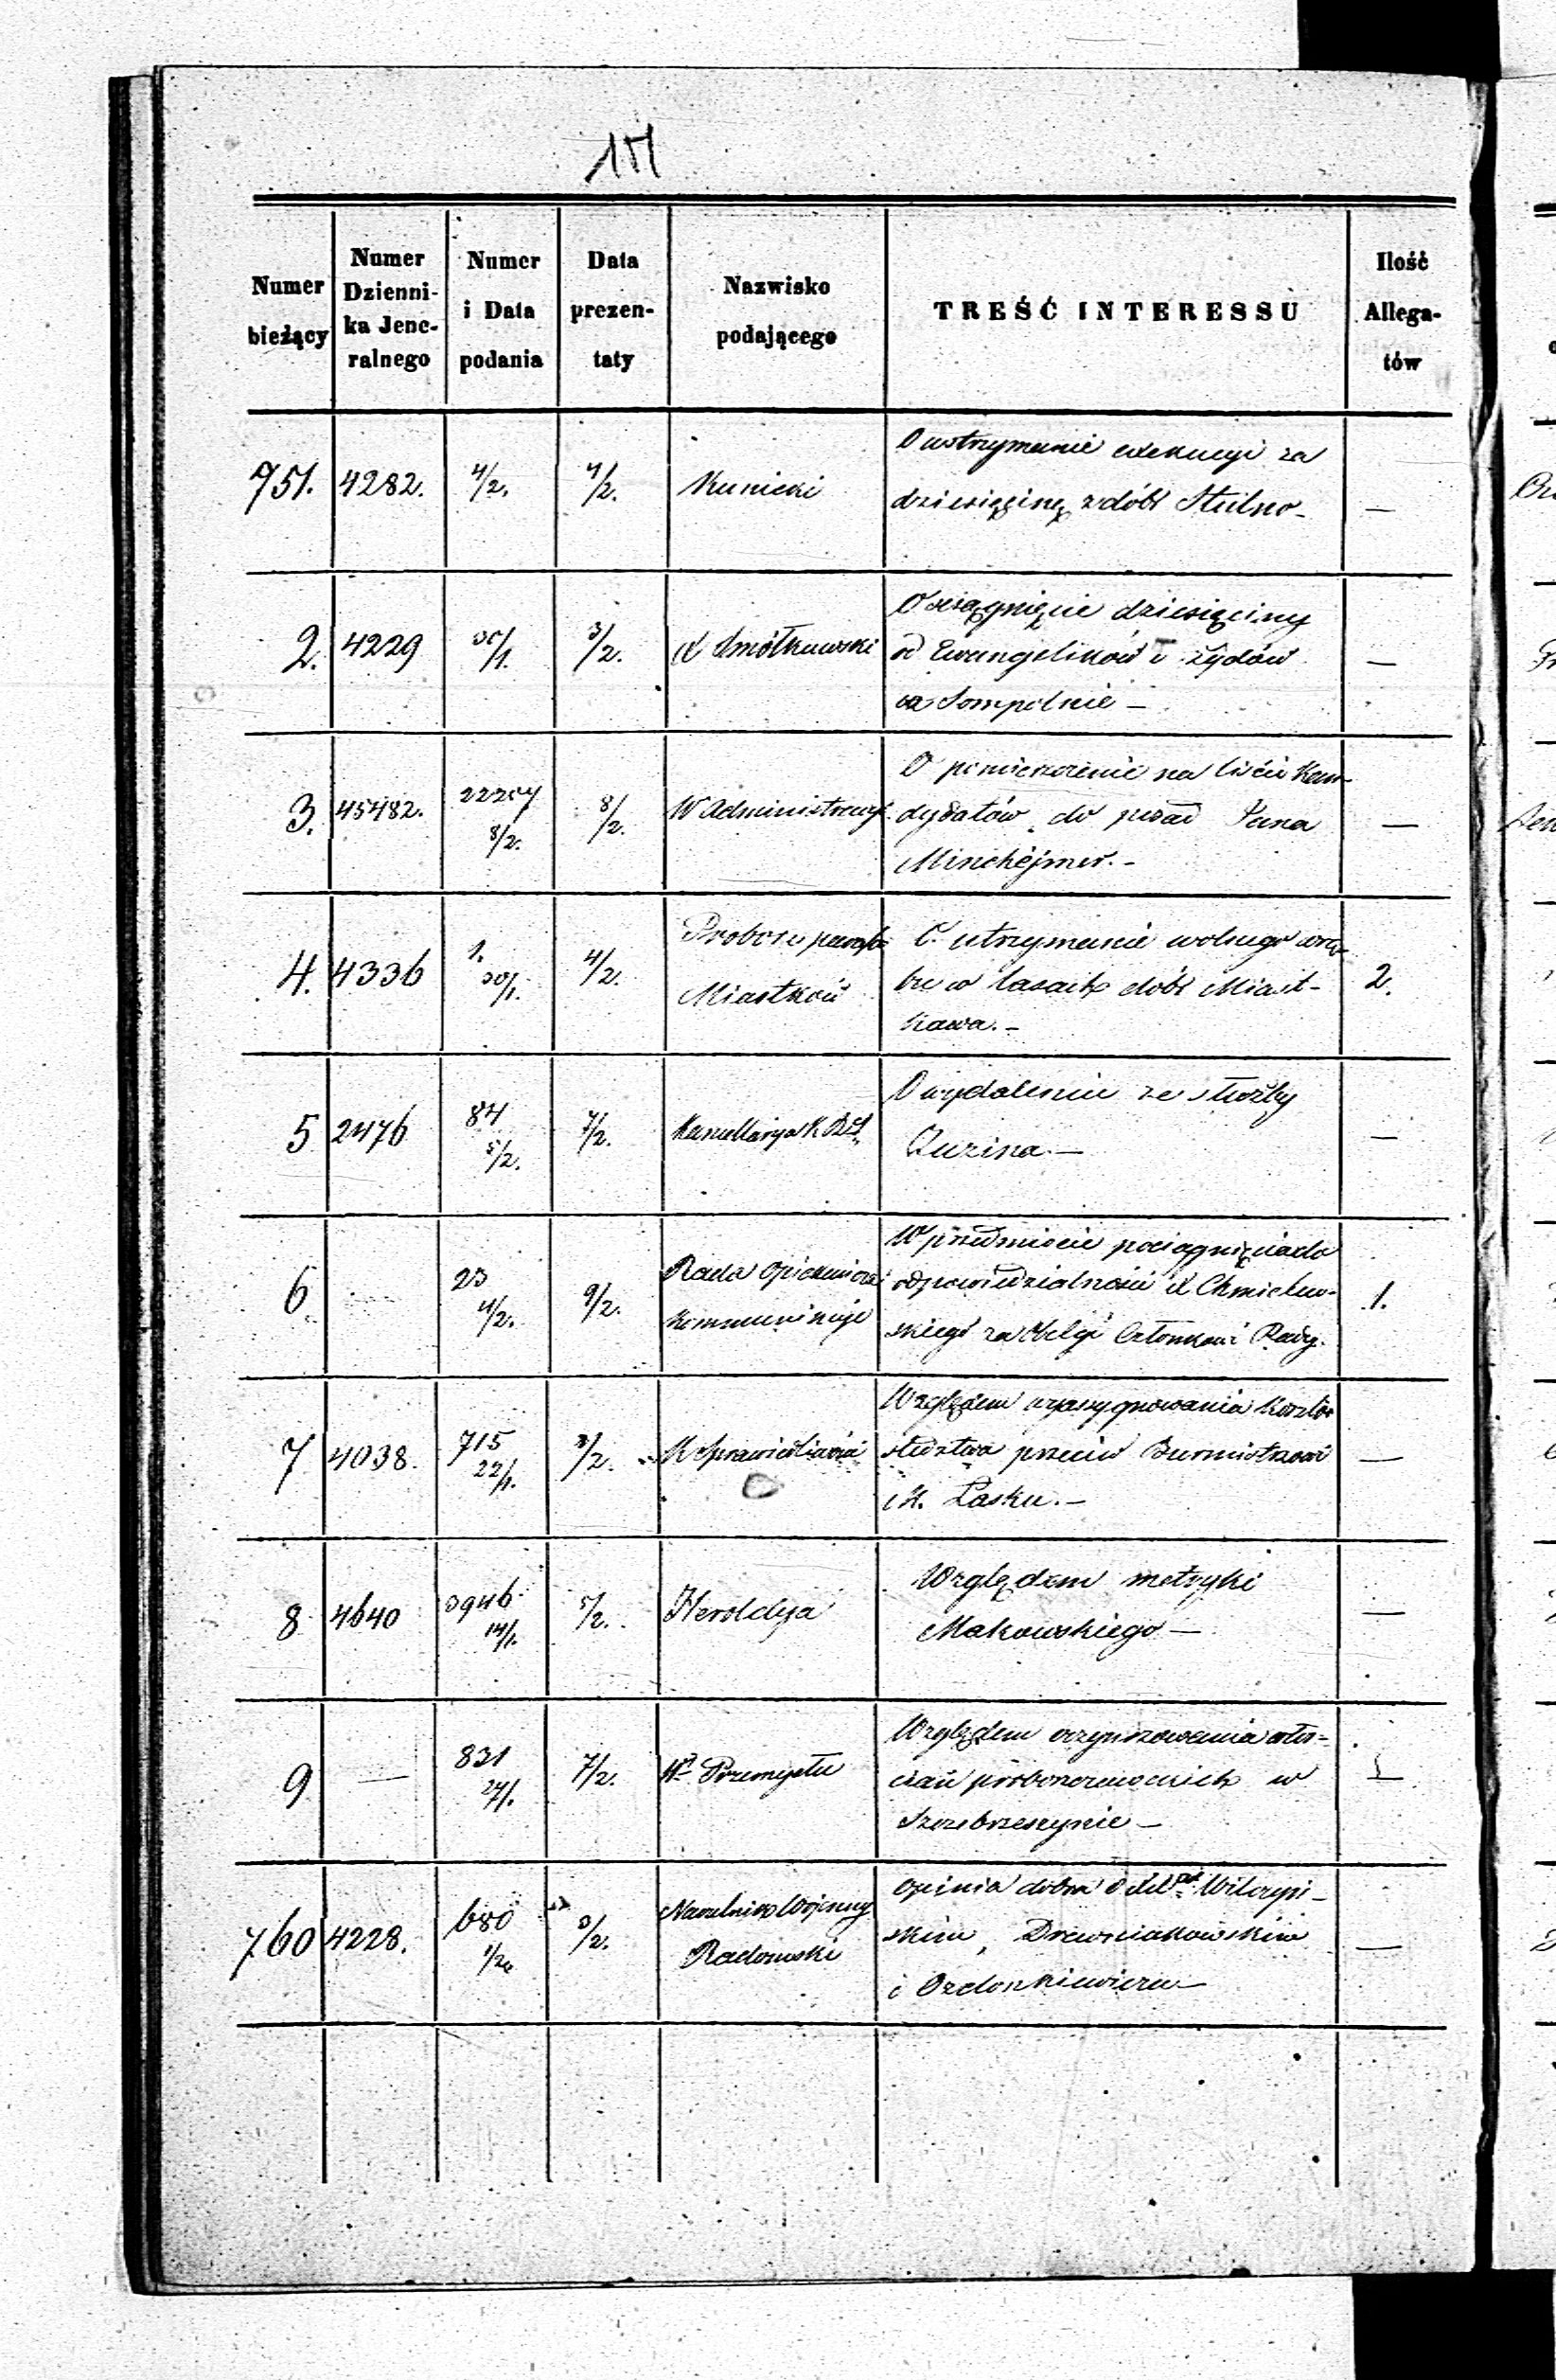 Numer bieżący | Numer Dziennika Jeneralnego | Numer i Data podania | Data prezentaty | Nazwisko podającego | TREŚĆ INTERESSU | Ilość Allegatów
751. | 4282. | 4/2. | 4/2. | Kunicki | O wstrzymanie exekucyi za
dziesięcinę z dóbr Stulno –
—
2. | 4229 | 30/1. | 3/2. | X Smółkowski | O ściągnięcie dziesięciny
od Ewangelików i Żydów
w Sompolnie –
—
3. | 45482. | 22207 8/2. | 8/2. | W Administracyi | O pomieszczenie na liście Kan-
dydatów do posad Jana
Minchejmer. –
—
4. | 4336 | 1. 30/1. | 4/2. | Proboszcz parafii
Miastków | O utrzymanie wolnego wrę-
bu w lasach dóbr Miast-
kowa. –
2.
5 | 2476 | 84 5/2. | 7/2. | Kancellarya | O wydaleniu ze służby
Zuzina. —
—
6 | 23 4/2. | 9/2. | Rada Opiekuńcza
kommunikuje | W przedmiocie pociągnięcia do
odpowiedzialności X Chmielew-
skiego za obelgi Członkowi Rady.
1.
7 | 4038. | 715 22/1. | 3/2. | K Sprawiedliwości | Względem wyasygnowania kosztów
śledztwa przeciw Burmistrzowi
M. Łasku. –
—
8 | 4640 | 3946 14/1. | 5/2. | Heroldya | Względem metryki
Makowskiego —
—
9 | — | 831 27/1. | 7/2. | Wł Przemysłu | Względem oczynszowania włoś-
cian proboszczowskich w
Szczebrzeszynie —
1
760 | 4228. | 680 1/2. | 3/2. | Naczelnik Wojenny
Radomski | Opinia dobra o
skim, Drewniakowskim
i
—